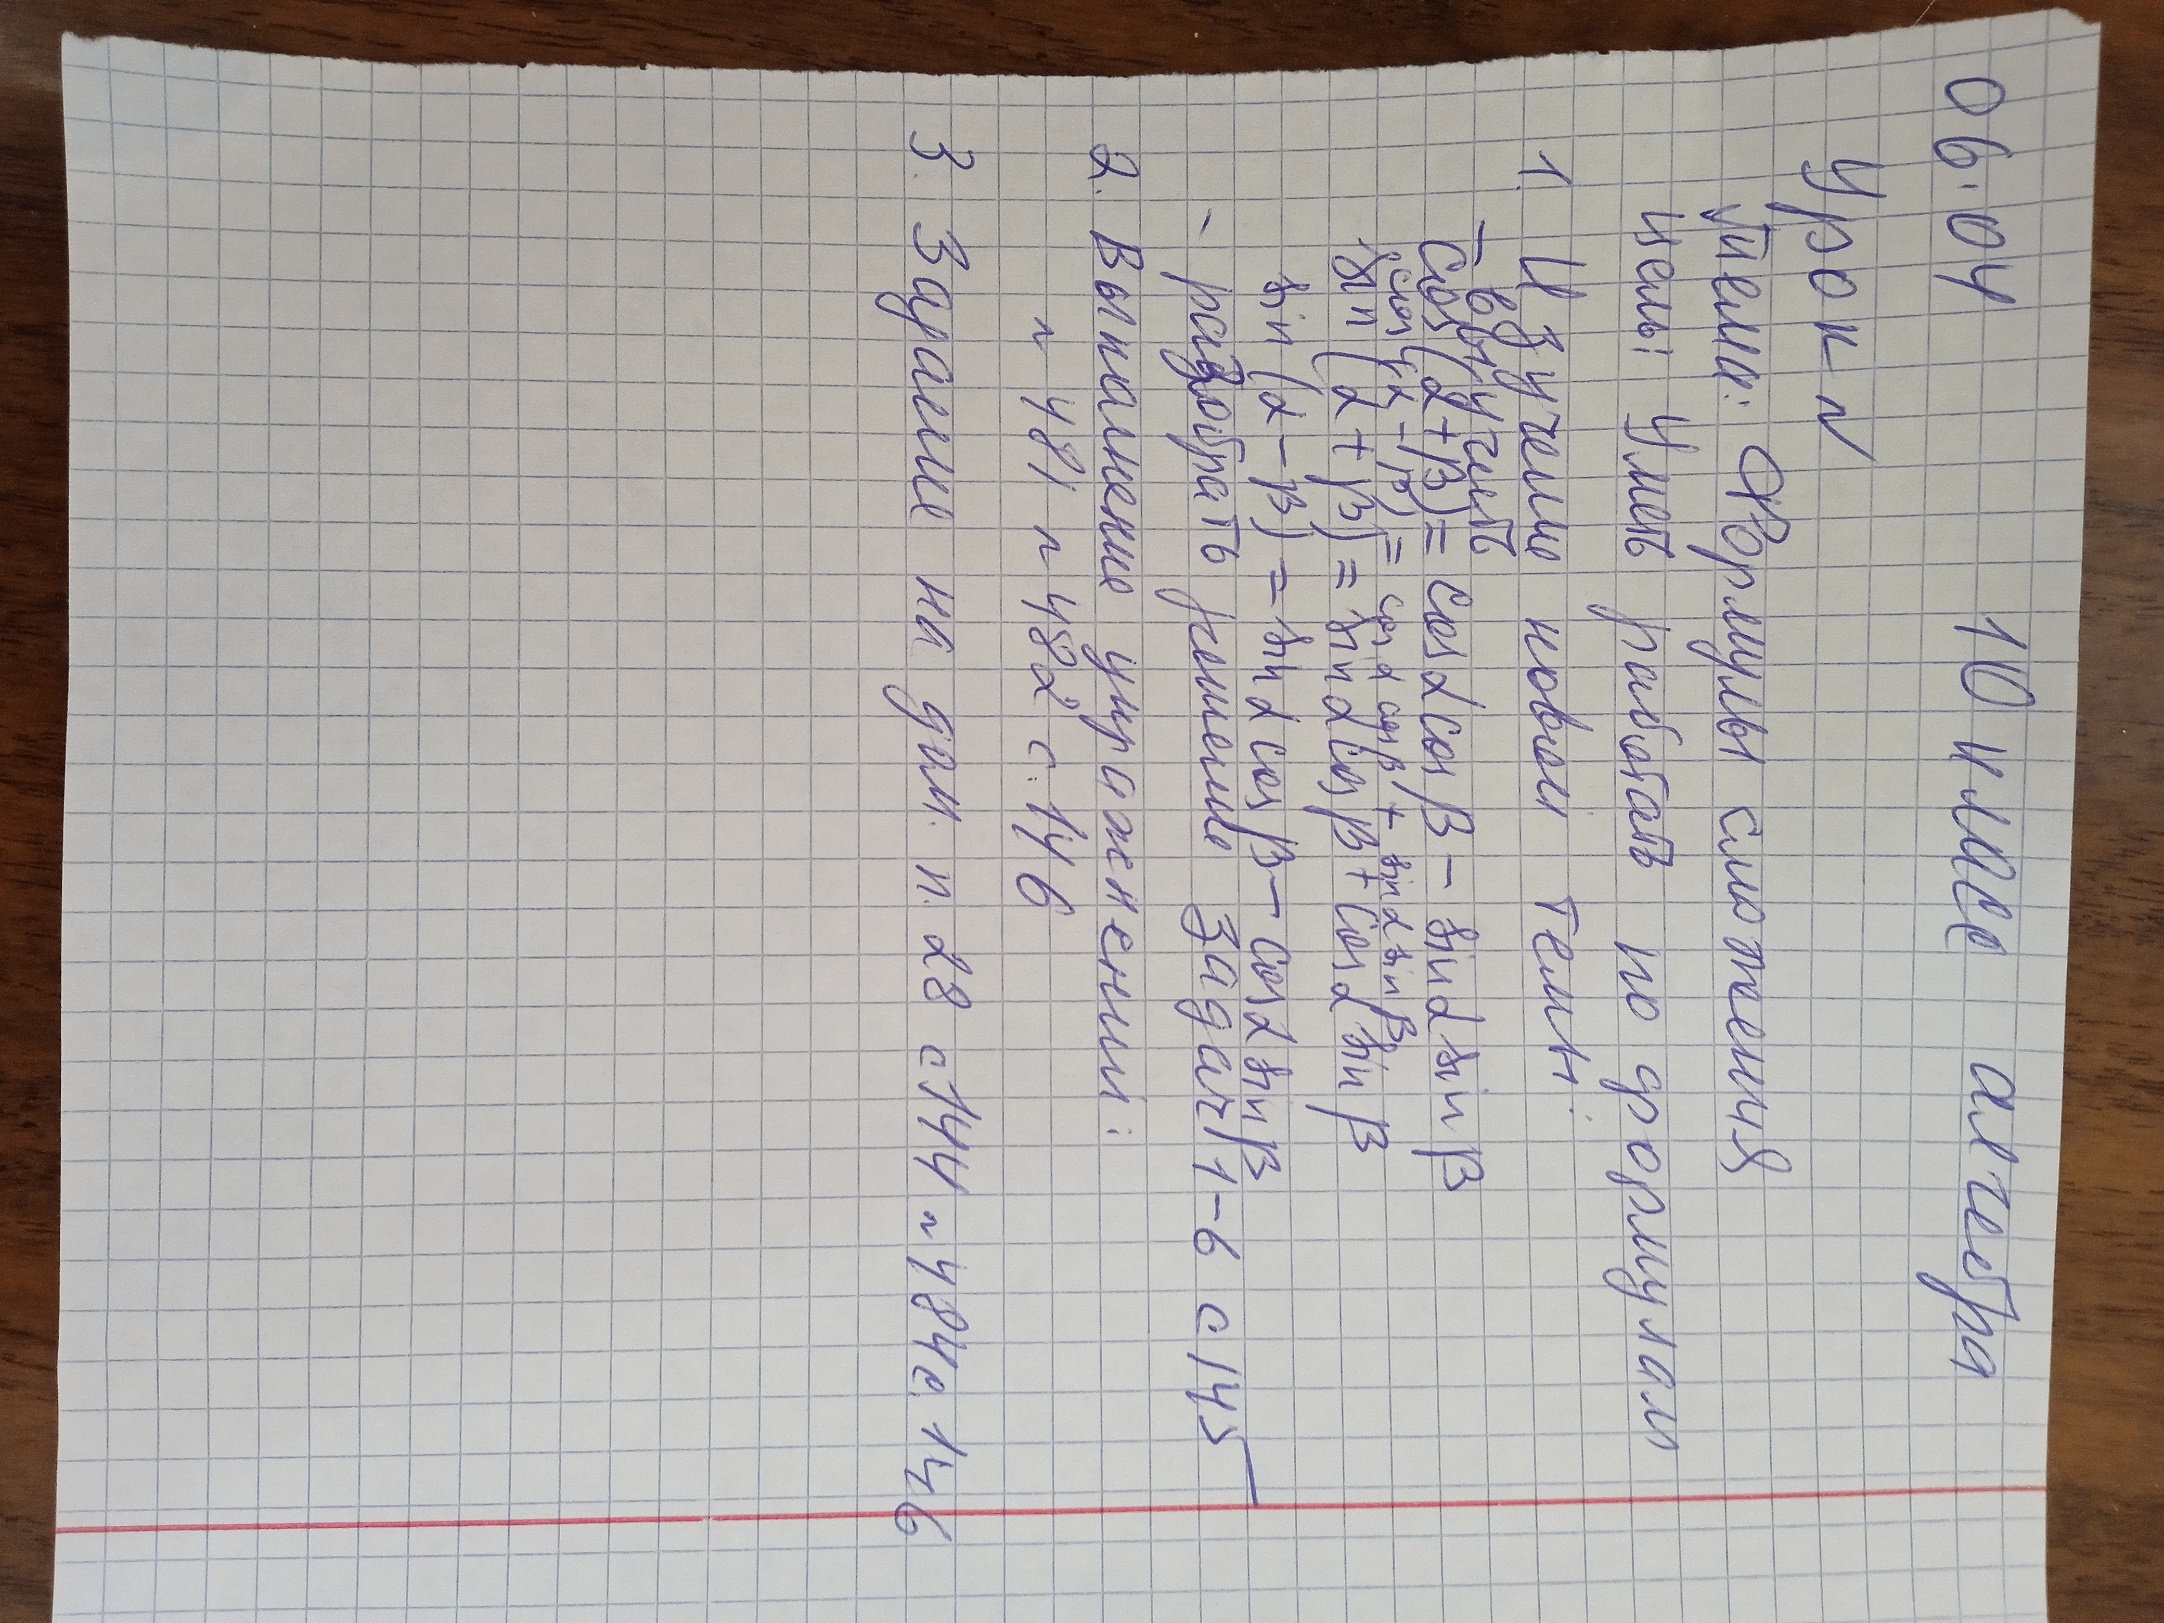 06.04 10 класс алгебра
Урок N
Тема: Формулы сложения
Цель: Уметь работать по формулам
1. Изучение новой темы.
- выучить
Cos(α+β)= cosα cosβ - sinα sinβ
cos(α-β)= cosα cosβ + sinα sinβ
sin(α+β)= sinα cosβ + cosα sinβ
sin(α-β)= sinα cosβ - cosα sinβ
- разобрать решение задач 1-6 с 145
2. Выполнение упражнений:
N 481 N 482 с. 146
3. Задание на дом. п. 28 с 144 N 484 с. 146